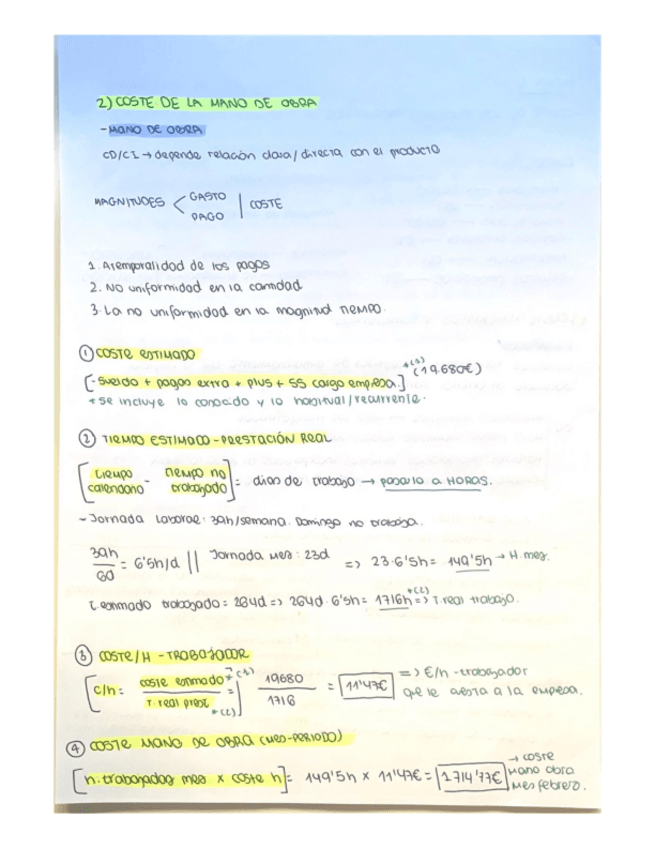 2) COSTE DE LA MANO DE OBRA
- MANO DE OBRA
CD/CI → depende relación clara/directa con el producto
MAGNITUDES < GASTO PAGO | COSTE
1. Atemporalidad de los pagos
2. No uniformidad en la cantidad
3. La no uniformidad en la magnitud TIEMPO.
① COSTE ESTIMADO
[- Sueldo + pagas extra + plus + SS cargo empresa.] *(1) (19.680€)
* se incluye lo conocido y lo habitual/recurrente.
② TIEMPO ESTIMADO - PRESTACIÓN REAL
[tiempo calendario - tiempo no trabajado] = días de trabajo → pasarlo a HORAS.
- Jornada laboral: 39h/semana. Domingo no trabaja.
39h/6D = 6'5h/d || Jornada mes: 23d => 23·6'5h = 149'5h → H. mes.
T. estimado trabajado = 264d => 264d · 6'5h = 1716h *(2) => T. real trabajo.
③ COSTE/H - TRABAJADOR
[c/h = coste estimado *(1) / T. real prest *(2)] = 19680/1716 = 11'47€ => €/h - trabajador
que le cuesta a la empresa.
④ COSTE MANO DE OBRA (MES-PERIODO)
[h. trabajadas mes x coste h] = 149'5h x 11'47€ = 1.714'77€ → coste
mano obra
mes febrero.